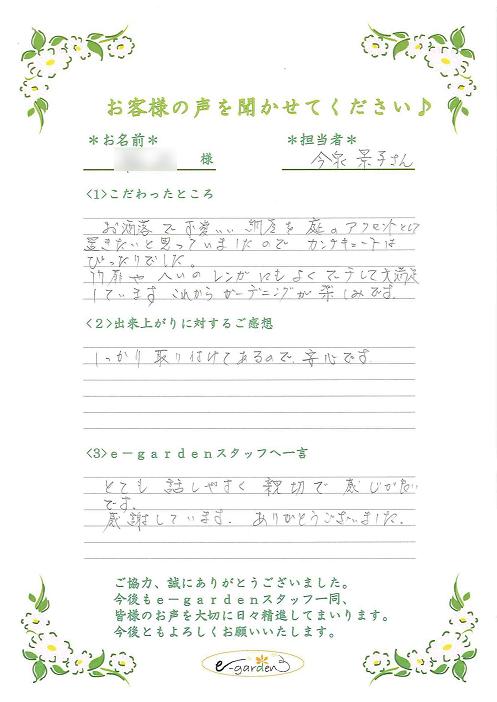 お客様の声を聞かせてください♪
＊お名前＊
＊担当者＊
様
今泉 景子さん
<1>こだわったところ
お洒落で可愛いい納屋を庭のアクセントとして
置きたいと思っていましたので カンナキュートは
ぴったりでした。
門扉や 人いの レンガにもよくマッチして大満足
しています これからガーデニングが楽しみです。
<2>出来上がりに対するご感想
しっかり取り付けてあるので 安心です
<3>ｅ－ｇａｒｄｅｎスタッフへ一言
とても 話しやすく 親切で 感じが良い
です.
感謝しています. ありがとうございました.
ご協力、誠にありがとうございました。
今後もｅ－ｇａｒｄｅｎスタッフ一同、
皆様のお声を大切に日々精進してまいります。
今後ともよろしくお願いいたします。
e-garden